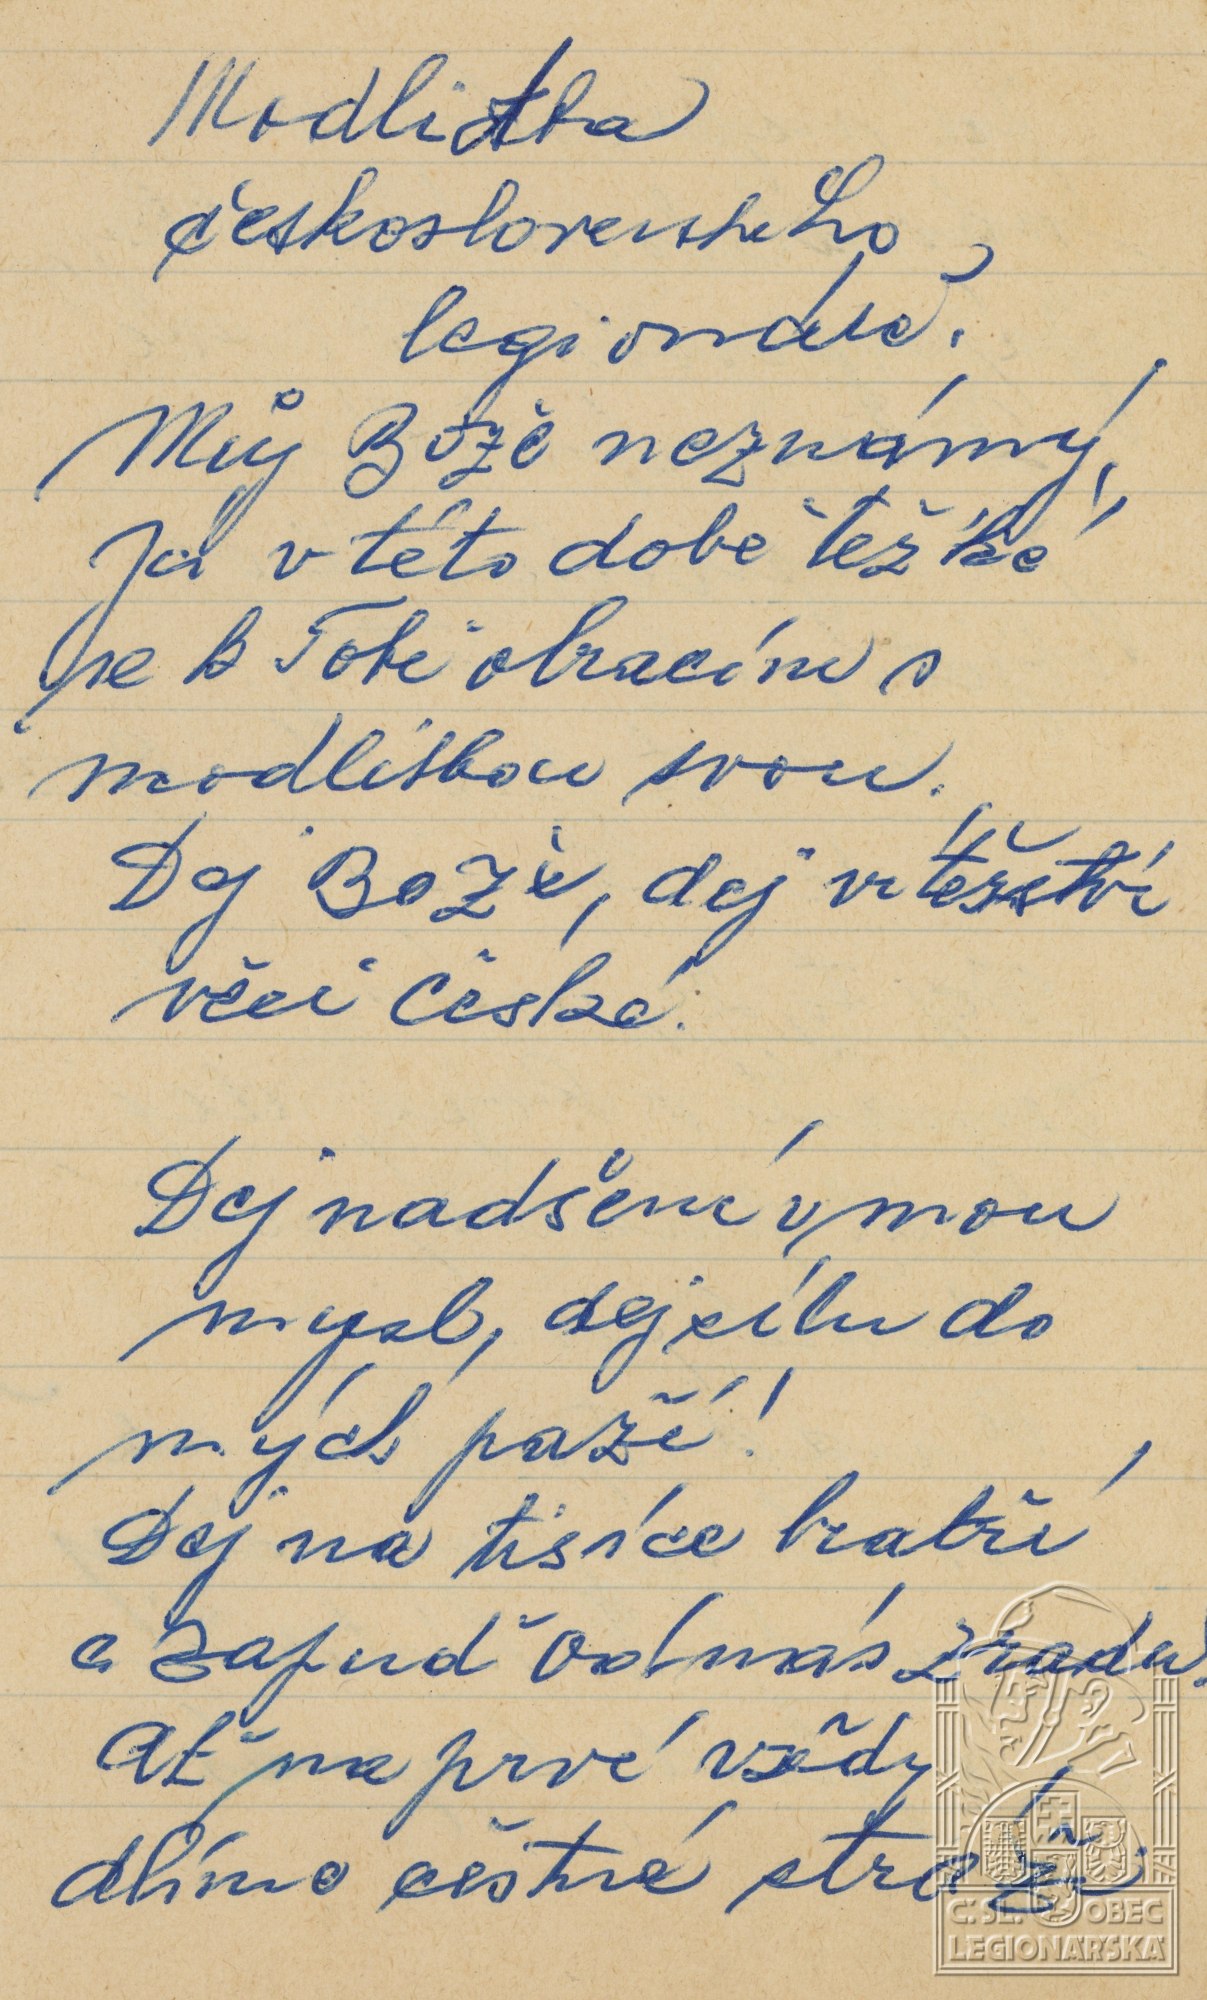 Modlitba
československého
legionáře.
Můj Bože neznámý,
Já v této době těžké
se k Tobě obracím s
modlitbou svou.
Dej Bože, dej vítězství
věci České.
Dej nadšení v mou
mysl, dej sílu do
mých paží!
Dej na tisíce bratří
a zapuď od nás zradu.
Ať na prvé vždy
dlíme čestné stráži.
Č. SL. OBEC
LEGIONÁŘSKÁ